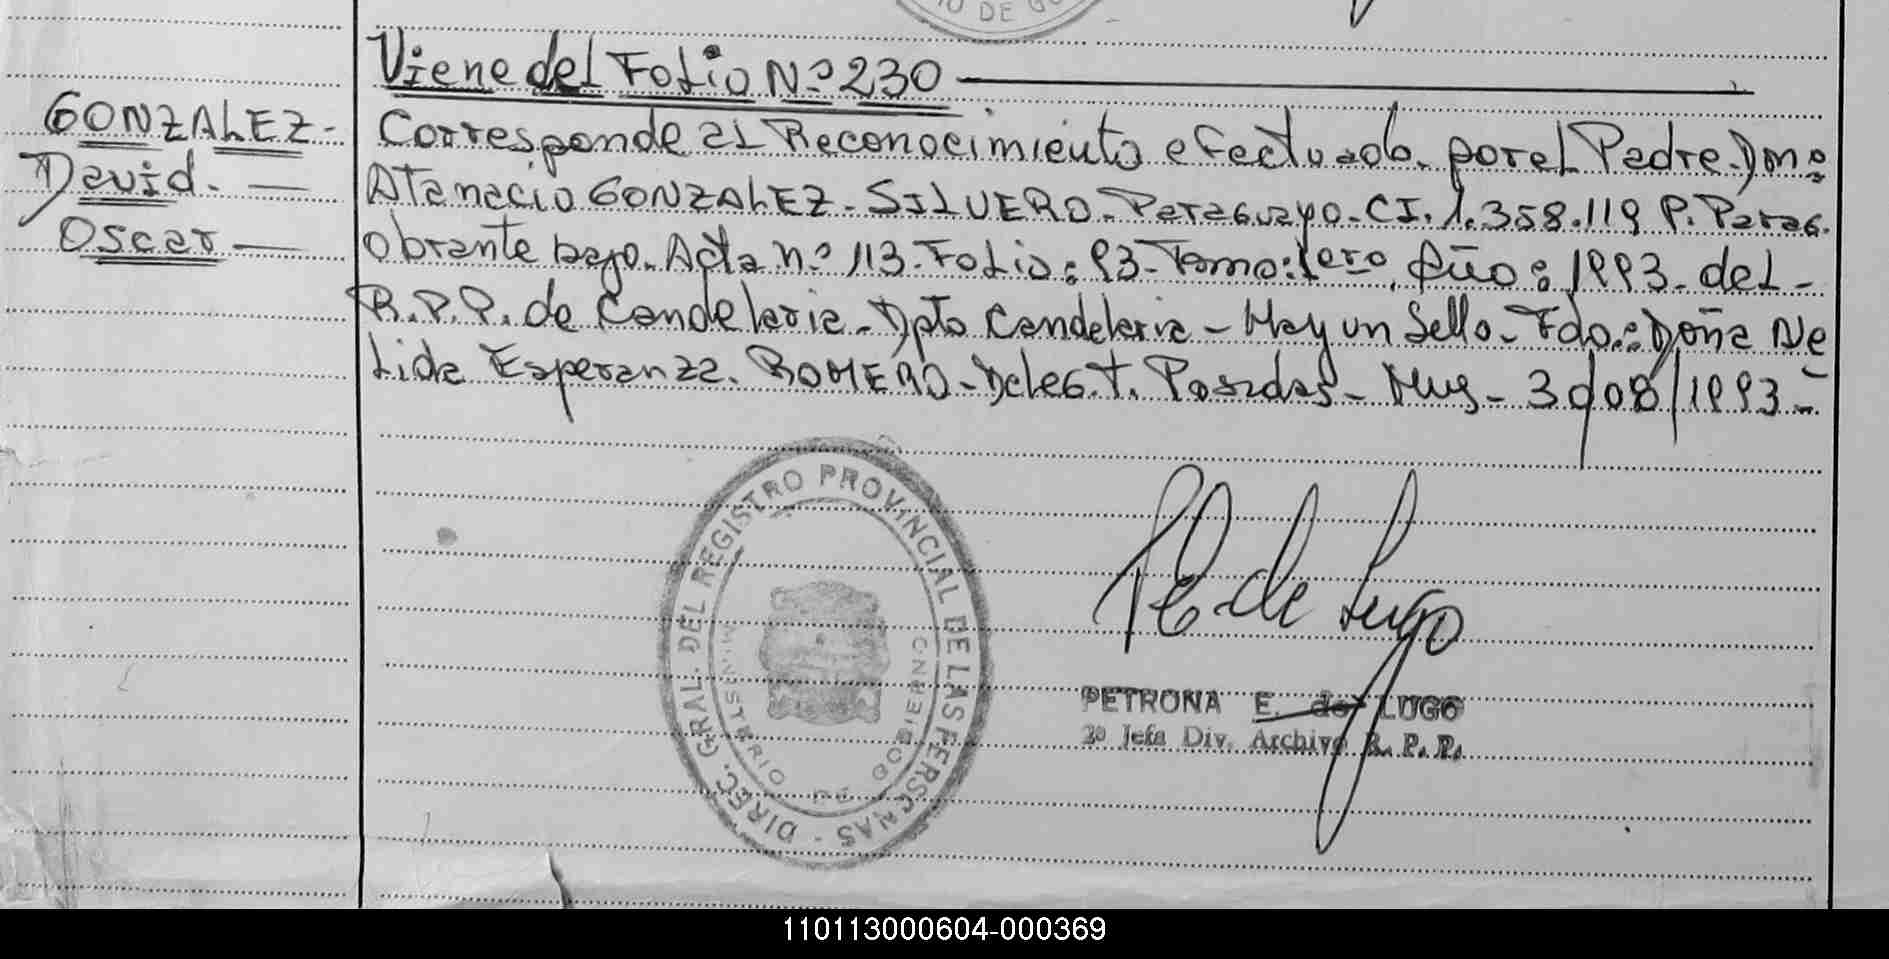 Viene del Folio Nº 230
GONZALEZ-
David.
Oscar
Corresponde al Reconocimiento efectuado. por el Padre. Don:
Atanacio GONZALEZ-SILVERO-Paraguayo-CI.1.358.119 P. Parag.
Obrante bajo. Acta nº 113-Folio: 93-Tomo: 1ero. Año: 1993. del-
R.P.P. de Candelaria-Dpto Candelaria-Hay un Sello-Fdo.: Doña Né
lida Esperanza. ROMERO-Deleg.t. Posadas-Mns-3/08/1993-
DIREC. GRAL. DEL REGISTRO PROVINCIAL DE LAS PERSONAS -
MINISTERIO DE GOBIERNO
PE de Lugo
PETRONA E. de LUGO
2º Jefa Div. Archivo R. P. P.
110113000604-000369